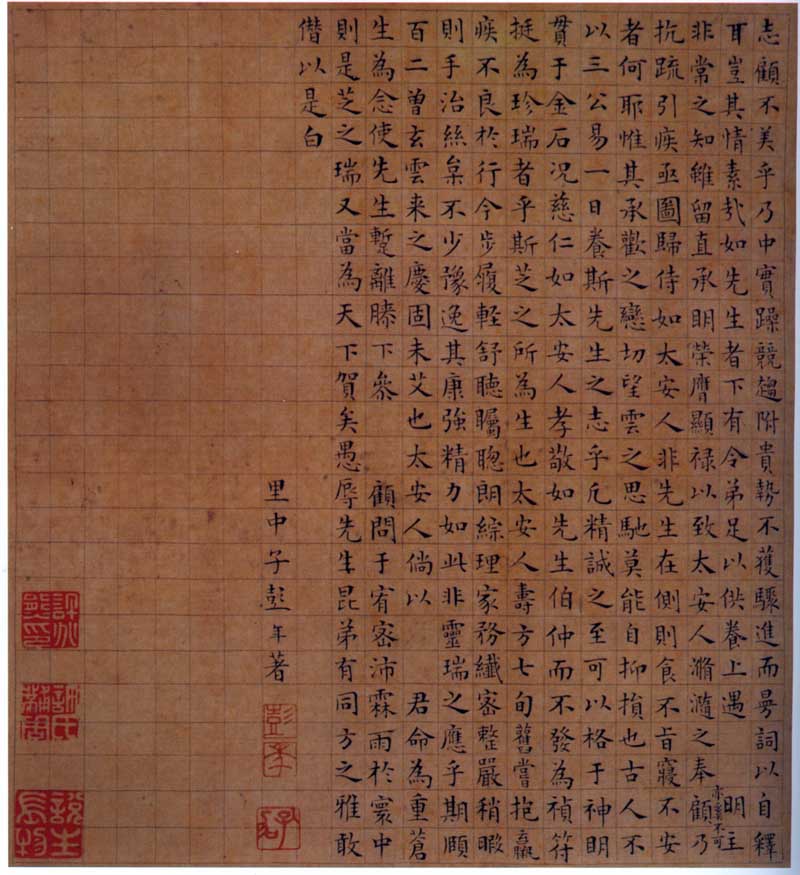 志顧不美乎乃中實躁競趨附貴勢不獲驟進而易詞以自釋
耳豈其情素哉如先生者下有令弟足以供養上遇 明主
非常之知雖留直承明榮膺顯祿以致太安人滫瀡之奉顧乃
抗疏引疾亟圖歸侍如太安人非先生在側則食不旨寢不安
者何耶惟其承歡之戀切望雲之思馳莫能自抑損也古人不
以三公易一日養斯先生之志乎凡精誠之至可以格于神明
貫于金石況慈仁如太安人孝敬如先生伯仲而不發為禎符
挺為珍瑞者乎斯芝之所為生也太安人壽方七旬舊嘗抱羸
疾不良於行今步履輕舒聽矚聰朗綜理家務纖密整嚴稍暇
則手治絲枲不少豫逸其康強精力如此非靈瑞之應乎期頤
百二曾玄雲來之慶固未艾也太安人倘以 君命為重蒼
生為念使先生暫離膝下參 顧問于宥密沛霖雨於寰中
則是芝之瑞又當為天下賀矣愚辱先生昆弟有同方之雅敢
僭以是白
里中子彭年著
彭年